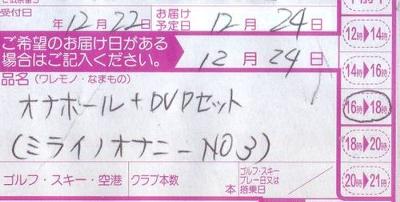 受付日 年 12月 22日 お届け予定日 12月 24日
ご希望のお届け日がある場合はご記入ください。 12月 24日
品名(ワレモノ・なまもの)
オナホール+DVDセット
(ミライノオナニーNO3)
ゴルフ・スキー・空港 クラブ本数 本 ゴルフ・スキー プレー日又は 搭乗日
12時▶14時
14時▶16時
16時▶18時
18時▶20時
20時▶21時